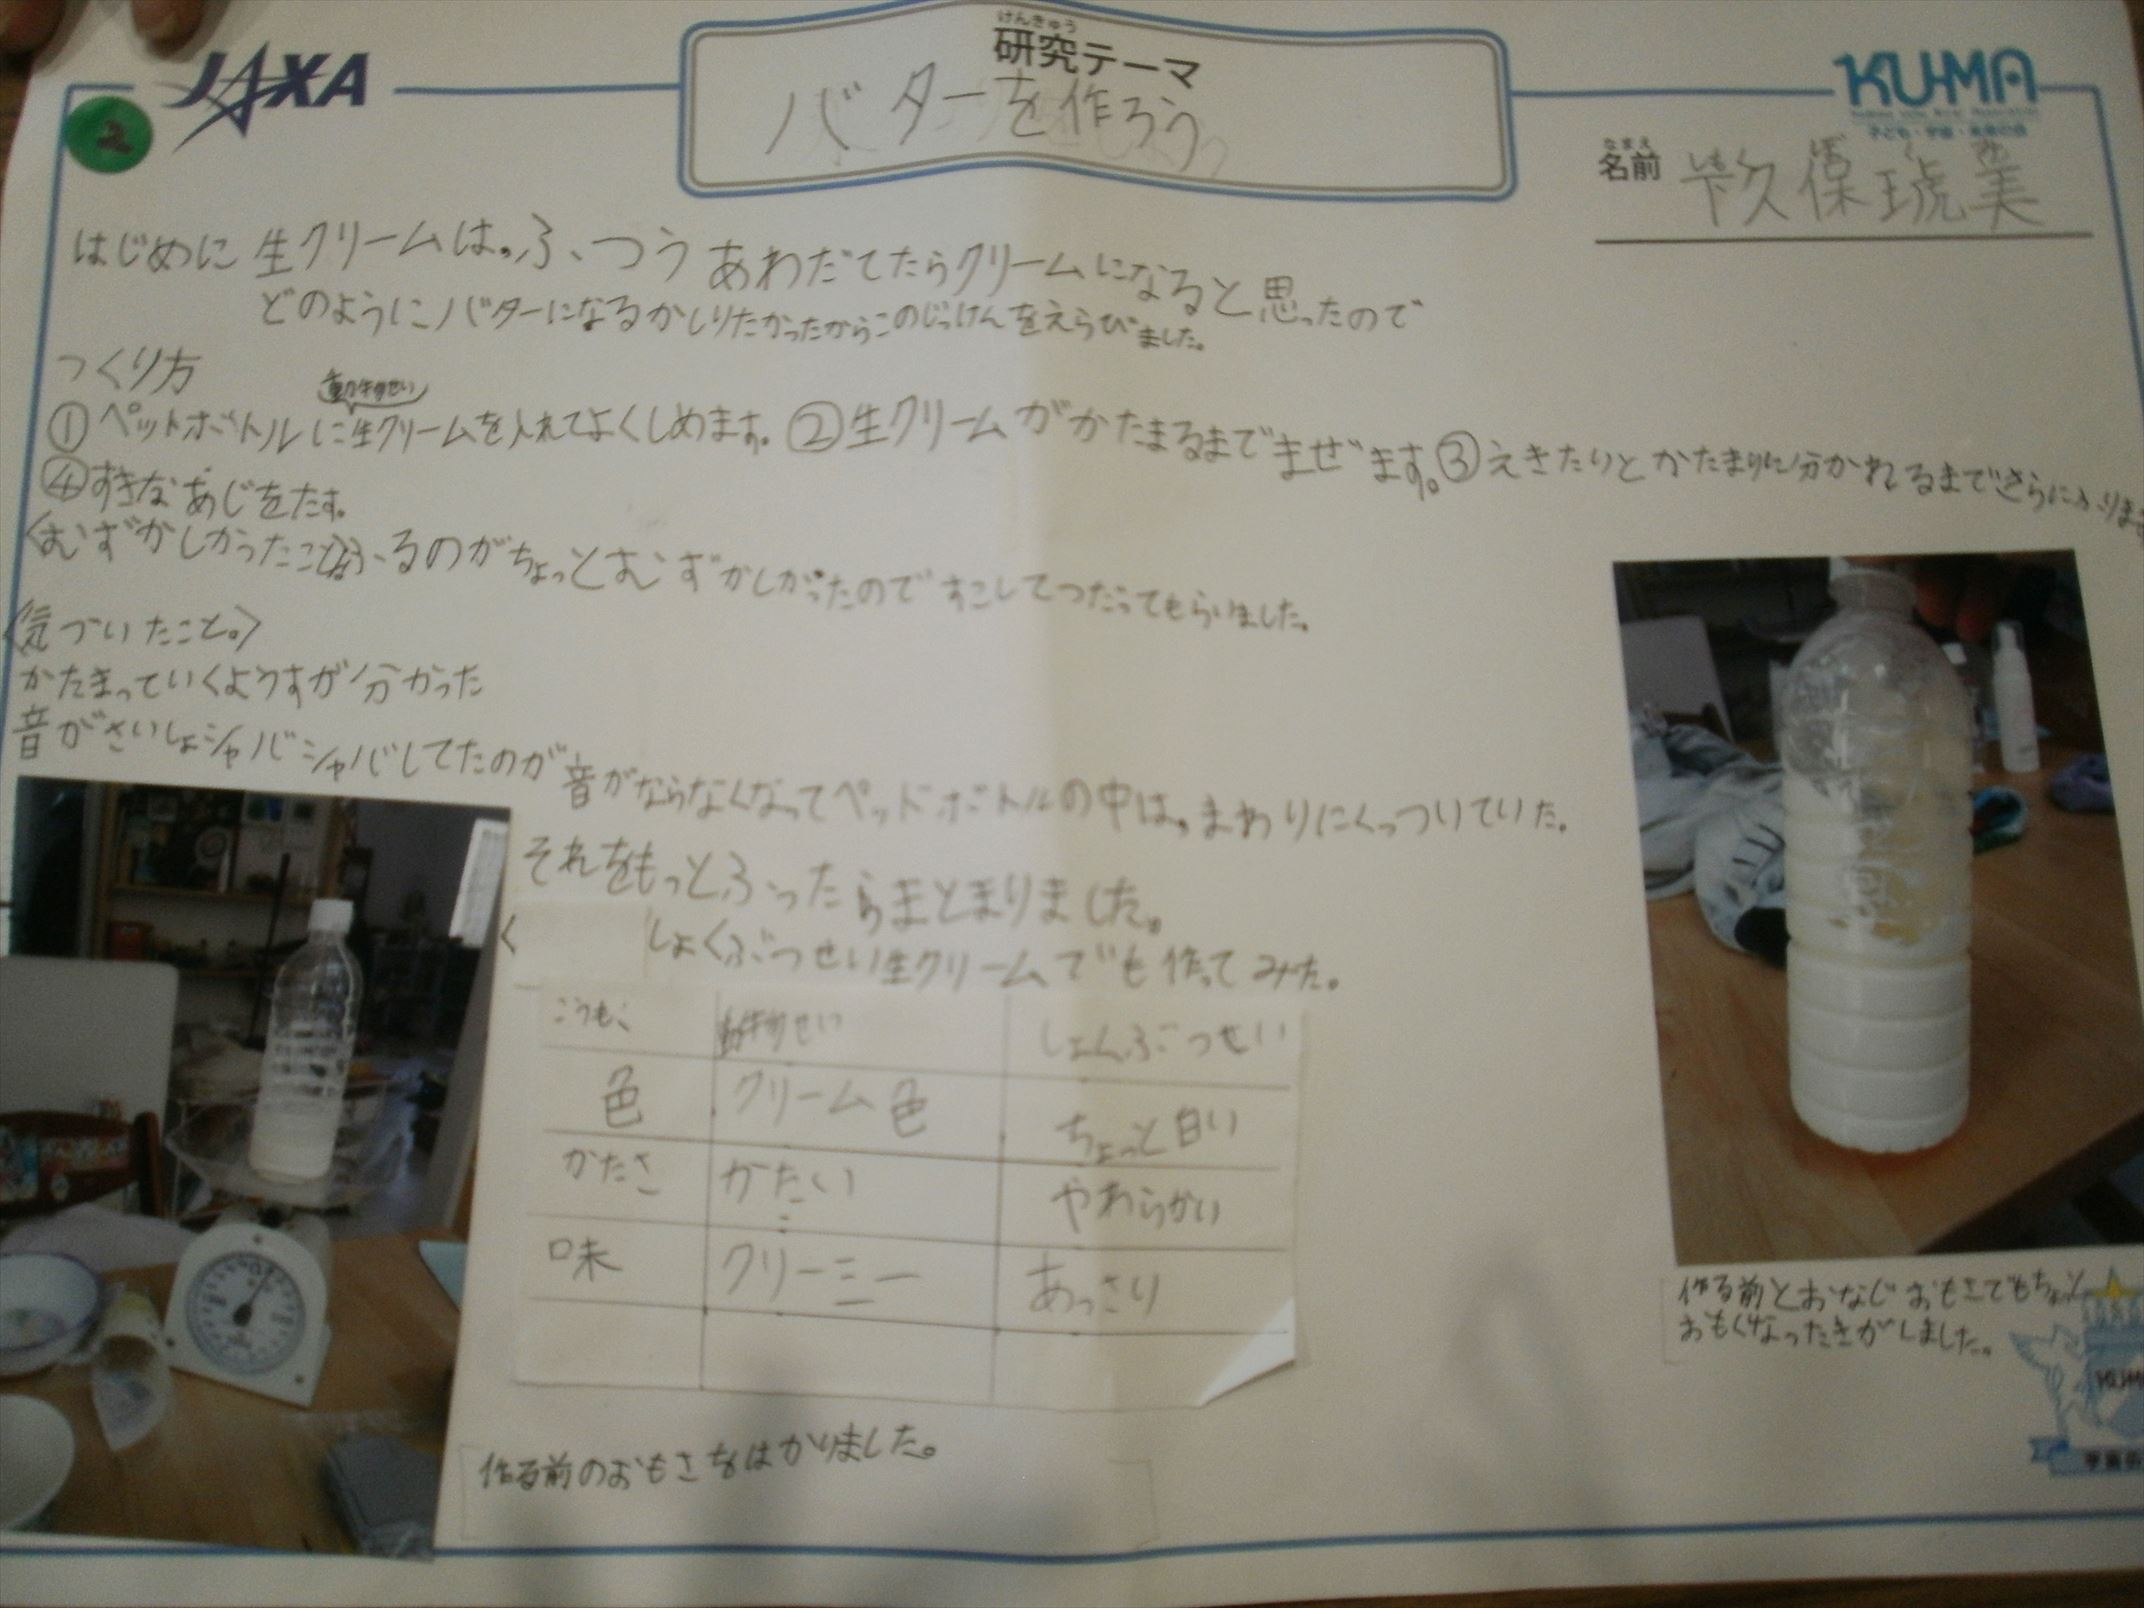 JAXA
けんきゅう
研究テーマ
バターを作ろう
KU-MA
子ども・宇宙・未来の会
なまえ
名前
久保琥美
はじめに 生クリームは。ふつうあわだてたらクリームになると思ったので
どのようにバターになるかしりたかったからこのじっけんをえらびました。
つくり方
動物せい
①ペットボトルに生クリームを入れてよくしめます。②生クリームがかたまるまでまぜます。③えきたりとかたまりに分かれるまでさらにふります
④すきなあじをたす。
〈むずかしかったこと〉ふるのがちょっとむずかしかったのですこしてつだってもらいました。
〈気づいたこと。〉
かたまっていくようすが分かった
音がさいしょシャバシャバしてたのが音がならなくなってペッドボトルの中は。まわりにくっついていた。
それをもっとふったらまとまりました。
〈 しょくぶつせい生クリームでも作ってみた。
こうもく 動物せい しょくぶつせい
色 クリーム色 ちょっと白い
かたさ かたい やわらかい
味 クリーミー あっさり
作る前のおもさをはかりました。
作る前とおなじおもさでもちょっと
おもくなったきがしました。